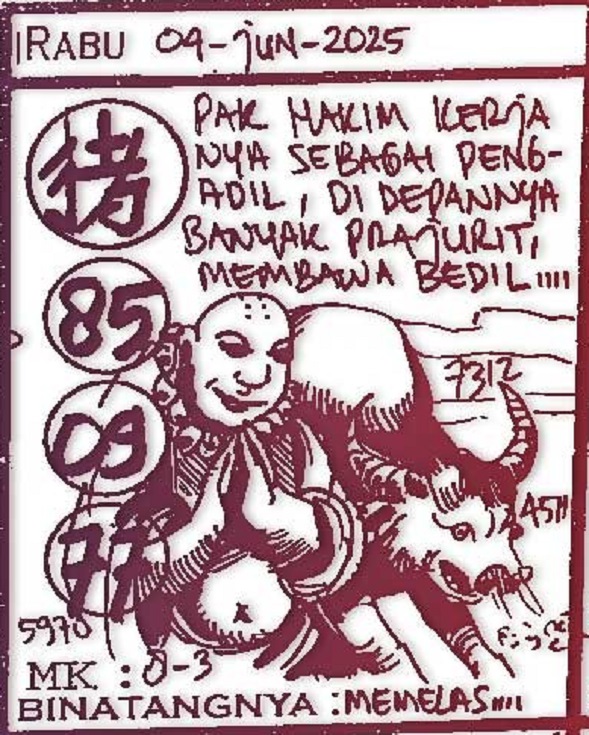 RABU 04-JUN-2025
猪
PAK HAKIM KERJA
NYA SEBAGAI PENG-
ADIL, DI DEPANNYA
BANYAK PRAJURIT,
MEMBAWA BEDIL....
85
09
77
7312
5970
MK : 0-3
BINATANGNYA : MEMELAS....